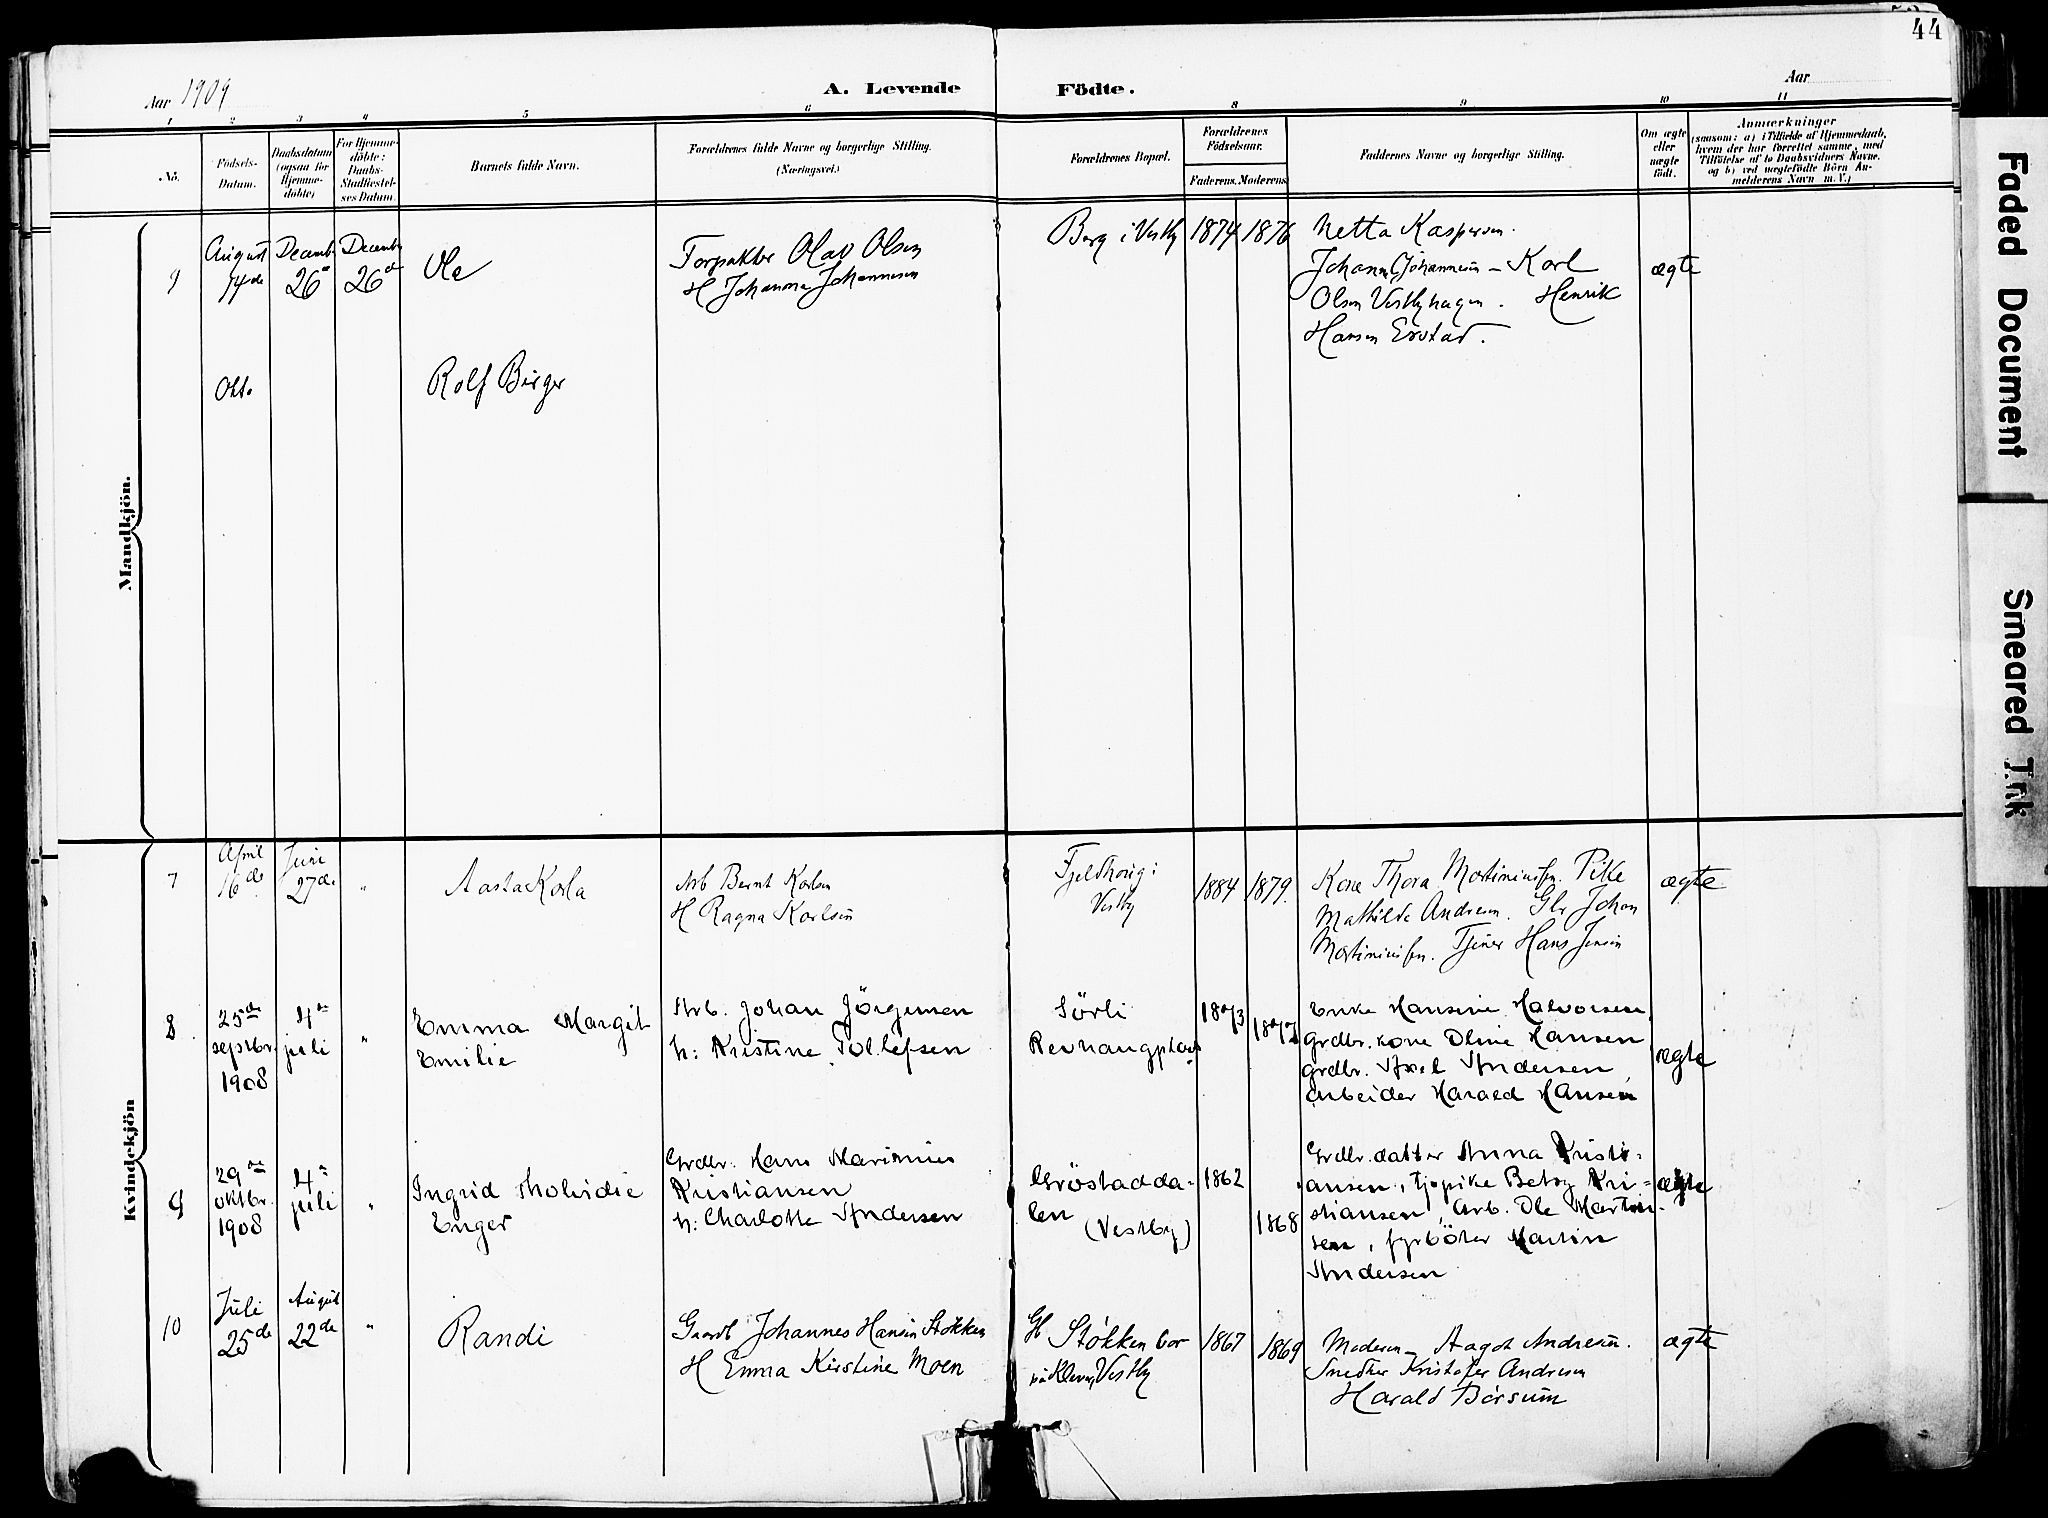 44
Aar 1909
A. Levende Födte.
Aar
1 2 3 4 5 6 8 9 10 11
No.
Födsels-
Datum.
Daabsdatum
(ogsaa for
Hjemme-
döbte)
For Hjemme-
döbte:
Daabs-
Stadfæstel-
ses Datum.
Barnets fulde Navn.
Forældrenes fulde Navne og borgerlige Stilling.
(Næringsvei.)
Forældrenes Bopæl.
Forældrenes
Födselsaar.
Faderens. Moderens.
Faddernes Navne og borgerlige Stilling.
Om ægte
eller
uægte
födt.
Anmærkninger
(saasom: a) i Tilfælde af Hjemmedaab,
hvem der har forrettet samme, med
Tilföielse af to Daabsvidners Navne.
og b) ved uægtefödte Börn An-
melderens Navn m. V.)
Mandkjön.
9
August
14de
Decemb
26de
Decemb
26de
Ole
Olav Olsen
H Johanna Johannesen
Berg i Vestby
1874 1876
Netta Kaspersen.
Johannes Johannesen - Karl
Olsen Vestbyhagen. Henrik
Hansen Erstad.
ægte
Okto
Rolf Birger
Kvindekjön
7
April
16de
Juni
27de
"
Aasta Karla
Arb Bernt Karlsen
H Ragna Karlsen
Fjeldhoug i
Vestby
1884 1879.
Kone Thora Martiniusen. Pike
Mathilde Andresen. Gbr Johan
Martiniusen. Tjener Hans Jensen
ægte
8
25de
septbr.
1908
4de
juli
"
Emma Margit
Emilie
Arb. Johan Jörgensen
h: Kristine Tollefsen
Sörli
Revhaugplads
1873
Enke Hansine Halvorsen,
grdbr. kone Oline Hansen
grdbr. Axel Andersen,
arbeider Harald Hansen
ægte
9
29de
oktbr.
1908
4de
juli
"
Ingrid Mohvidie
Enger
Grdbr. Hans Marinius
Kristiansen
h: Charlotte Andersen
Gröstadda-
len
(Vestby)
1862
1868
Grdbr.datter Anna Kristi-
ansen, tj.pike Betsy Kri-
stiansen, arb. Ole Martin-
sen, fyrböter Martin
Andersen
ægte
10
Juli
25de
August
22de
"
Randi
Gaardb Johannes Hansen Stökken
H Emma Kirstine Moen
Stökken bor
på Vestby
1867 1869
Moderen - Aagot Andresen.
Snedker Kristofer Andresen
Harald Börsum
ægte
Faded Document
Smeared Ink